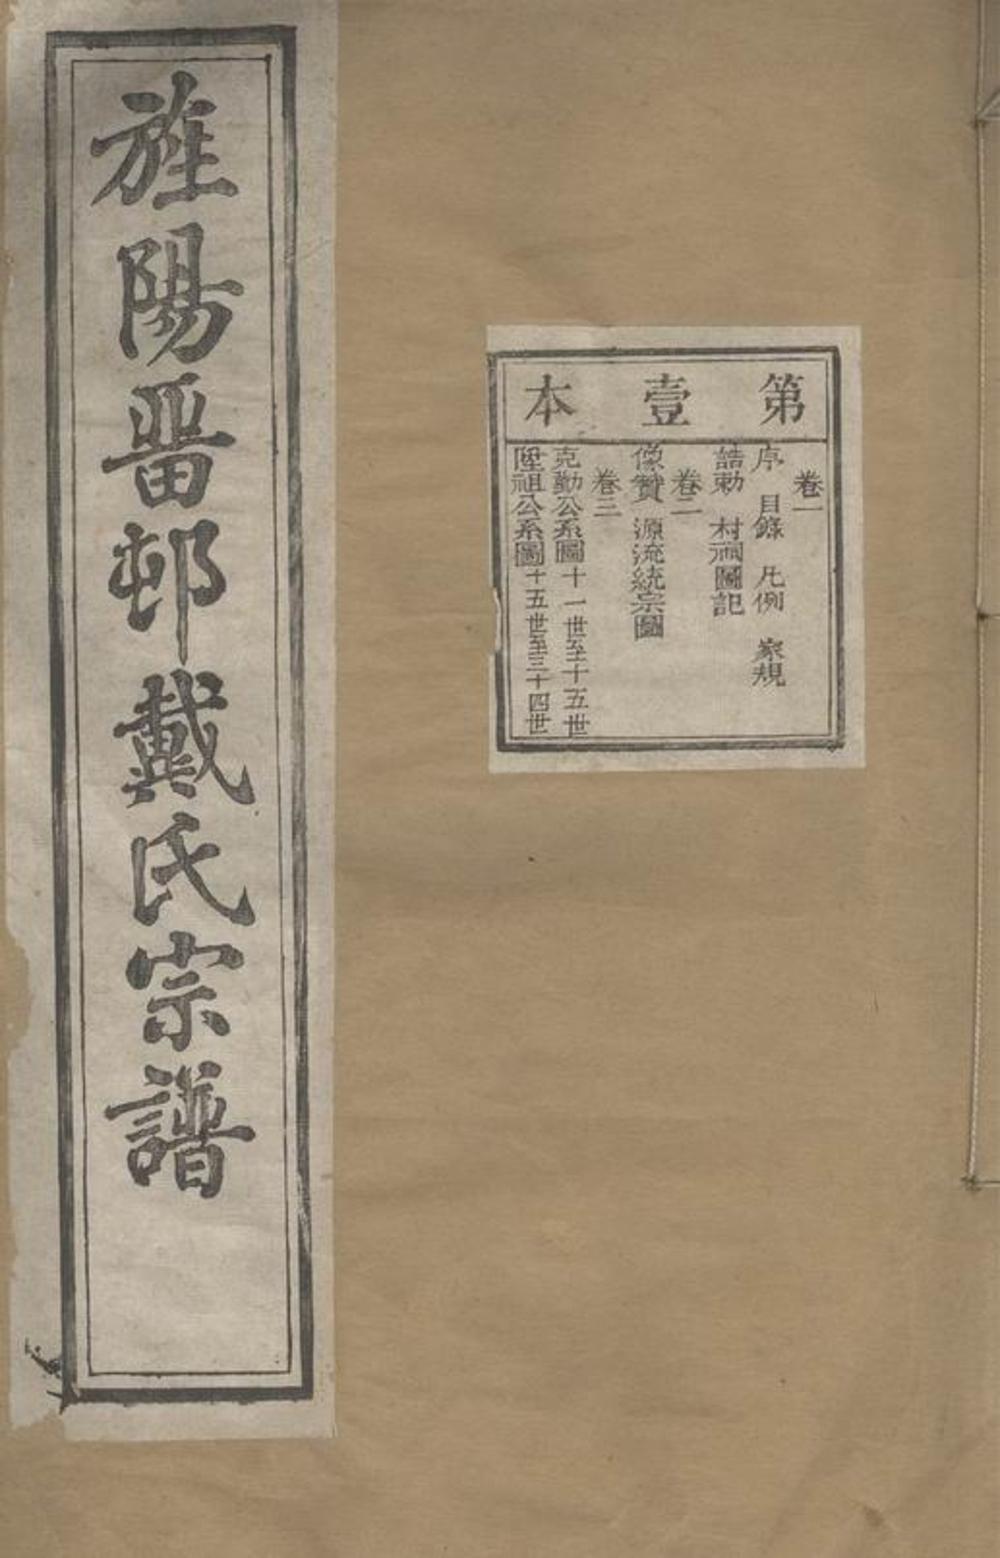 旌陽畱邨戴氏宗譜
第壹本
卷一
序 目錄 凡例 家規
誥勅 村祠圖記
卷二
像贊 源流統宗圖
卷三
克勤公系圖十一世至十五世
陞祖公系圖十五世至三十四世